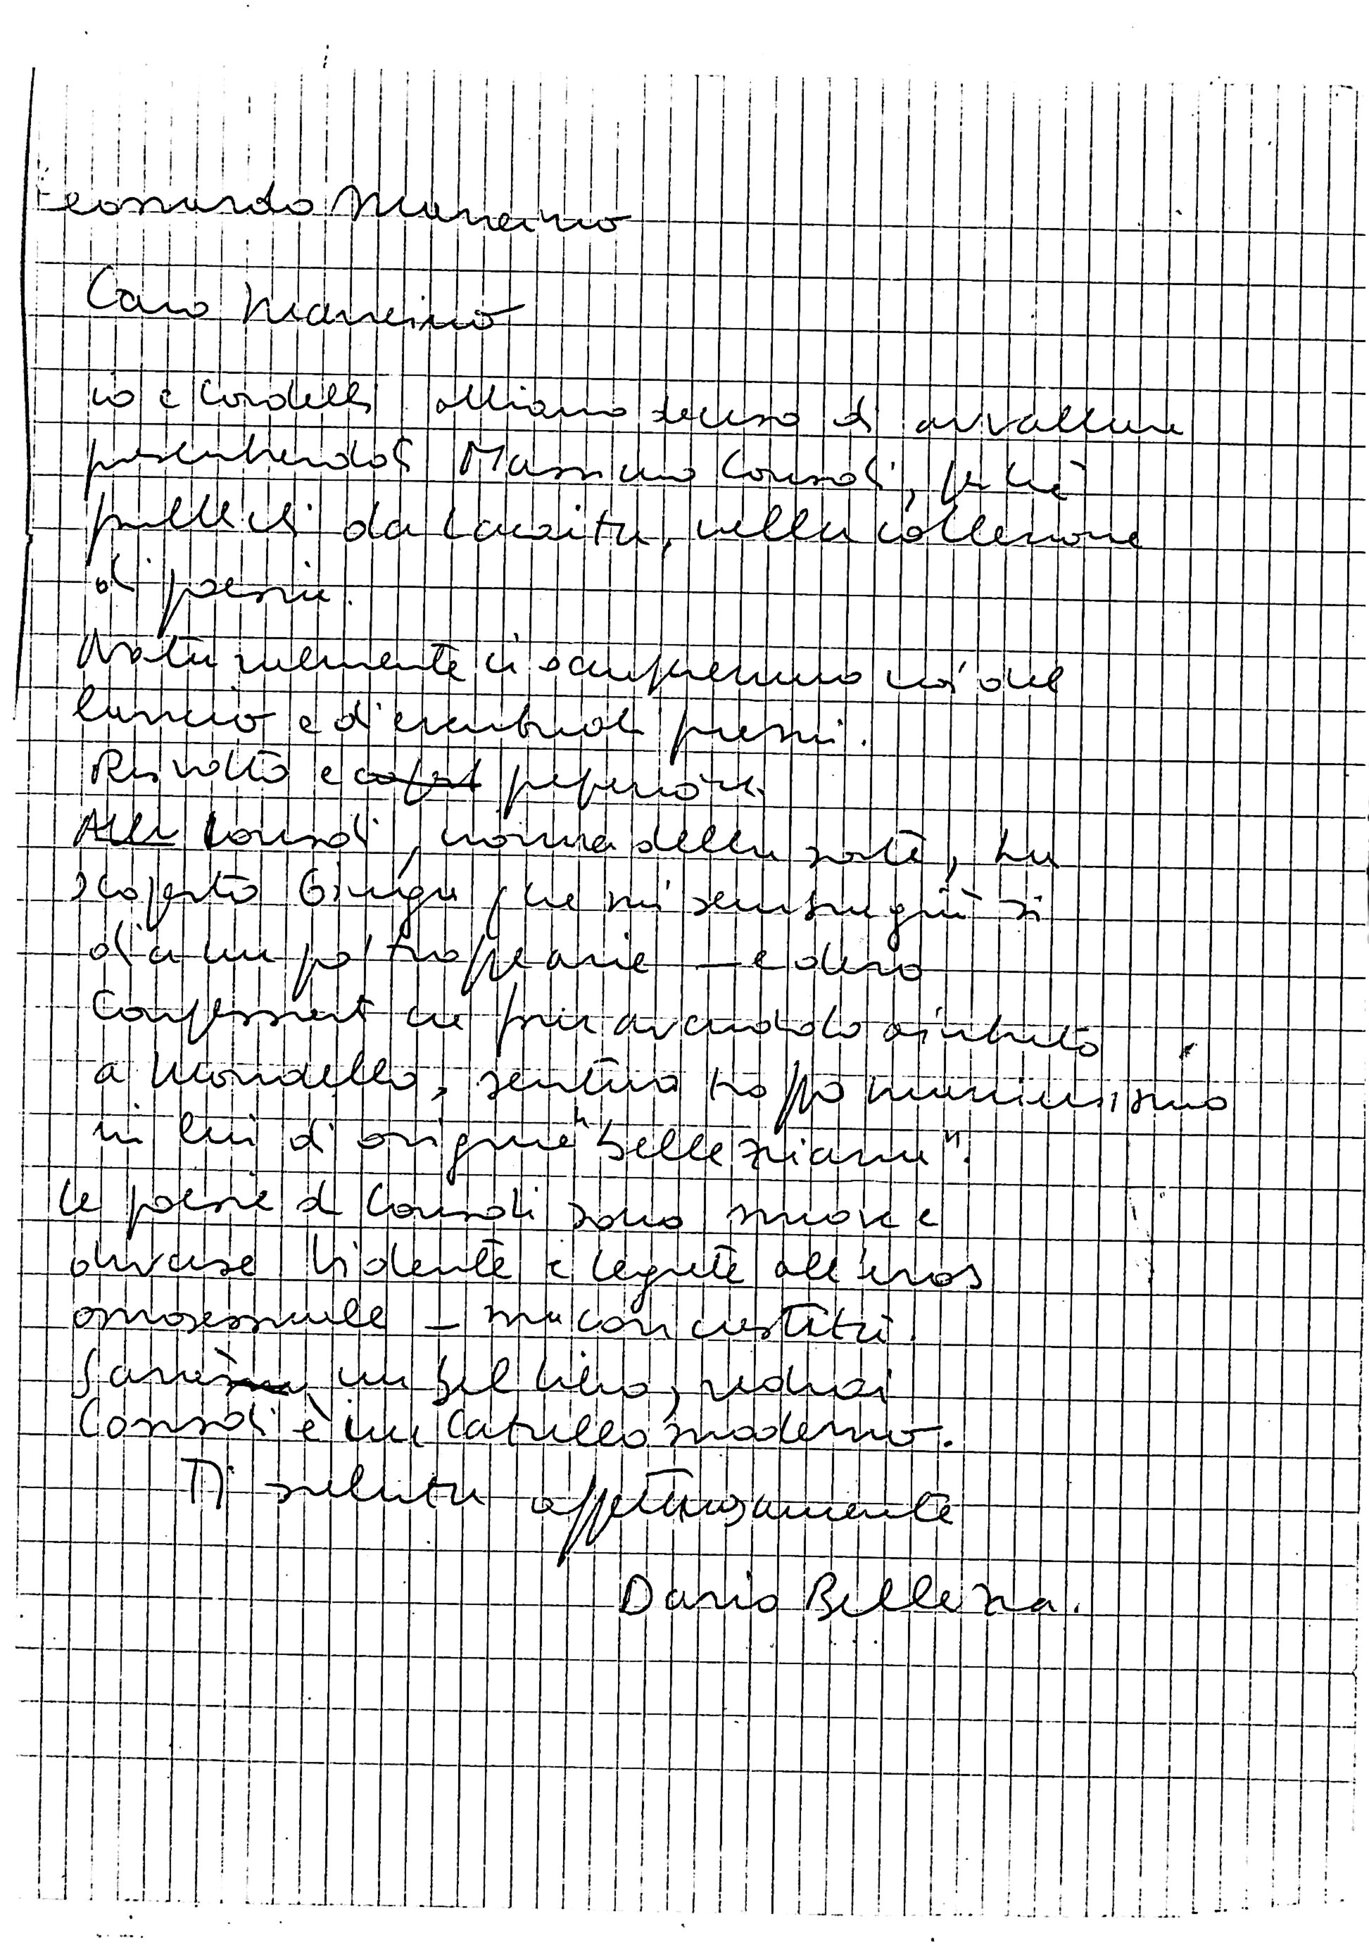 Leonardo Mancino
Caro Mancino
io e Cordelli abbiamo deciso di avvallare
presentandoti Massimo Consoli, perché
pubblichi da Lacaita, nella collezione
di poesia.
Naturalmente ci occuperemo noi del
lancio e di eventuali premi.
Risvolto e prefazione.
Consoli, ironia della sorte, ha
scoperto che mi sembra già si
dia un po' troppe arie — e devo
confessarti che pur avendolo aiutato
a Mondello, sentivo troppo manierismo
in lui di origine "belleziana".
Le poesie di Consoli sono nuove e
diverse stridente e legate all'eros
omosessuale — ma con castità.
Sarà un bel libro, vedrai
Consoli è un Catullo moderno.
Ti saluta affettuosamente
Dario Bellezza.